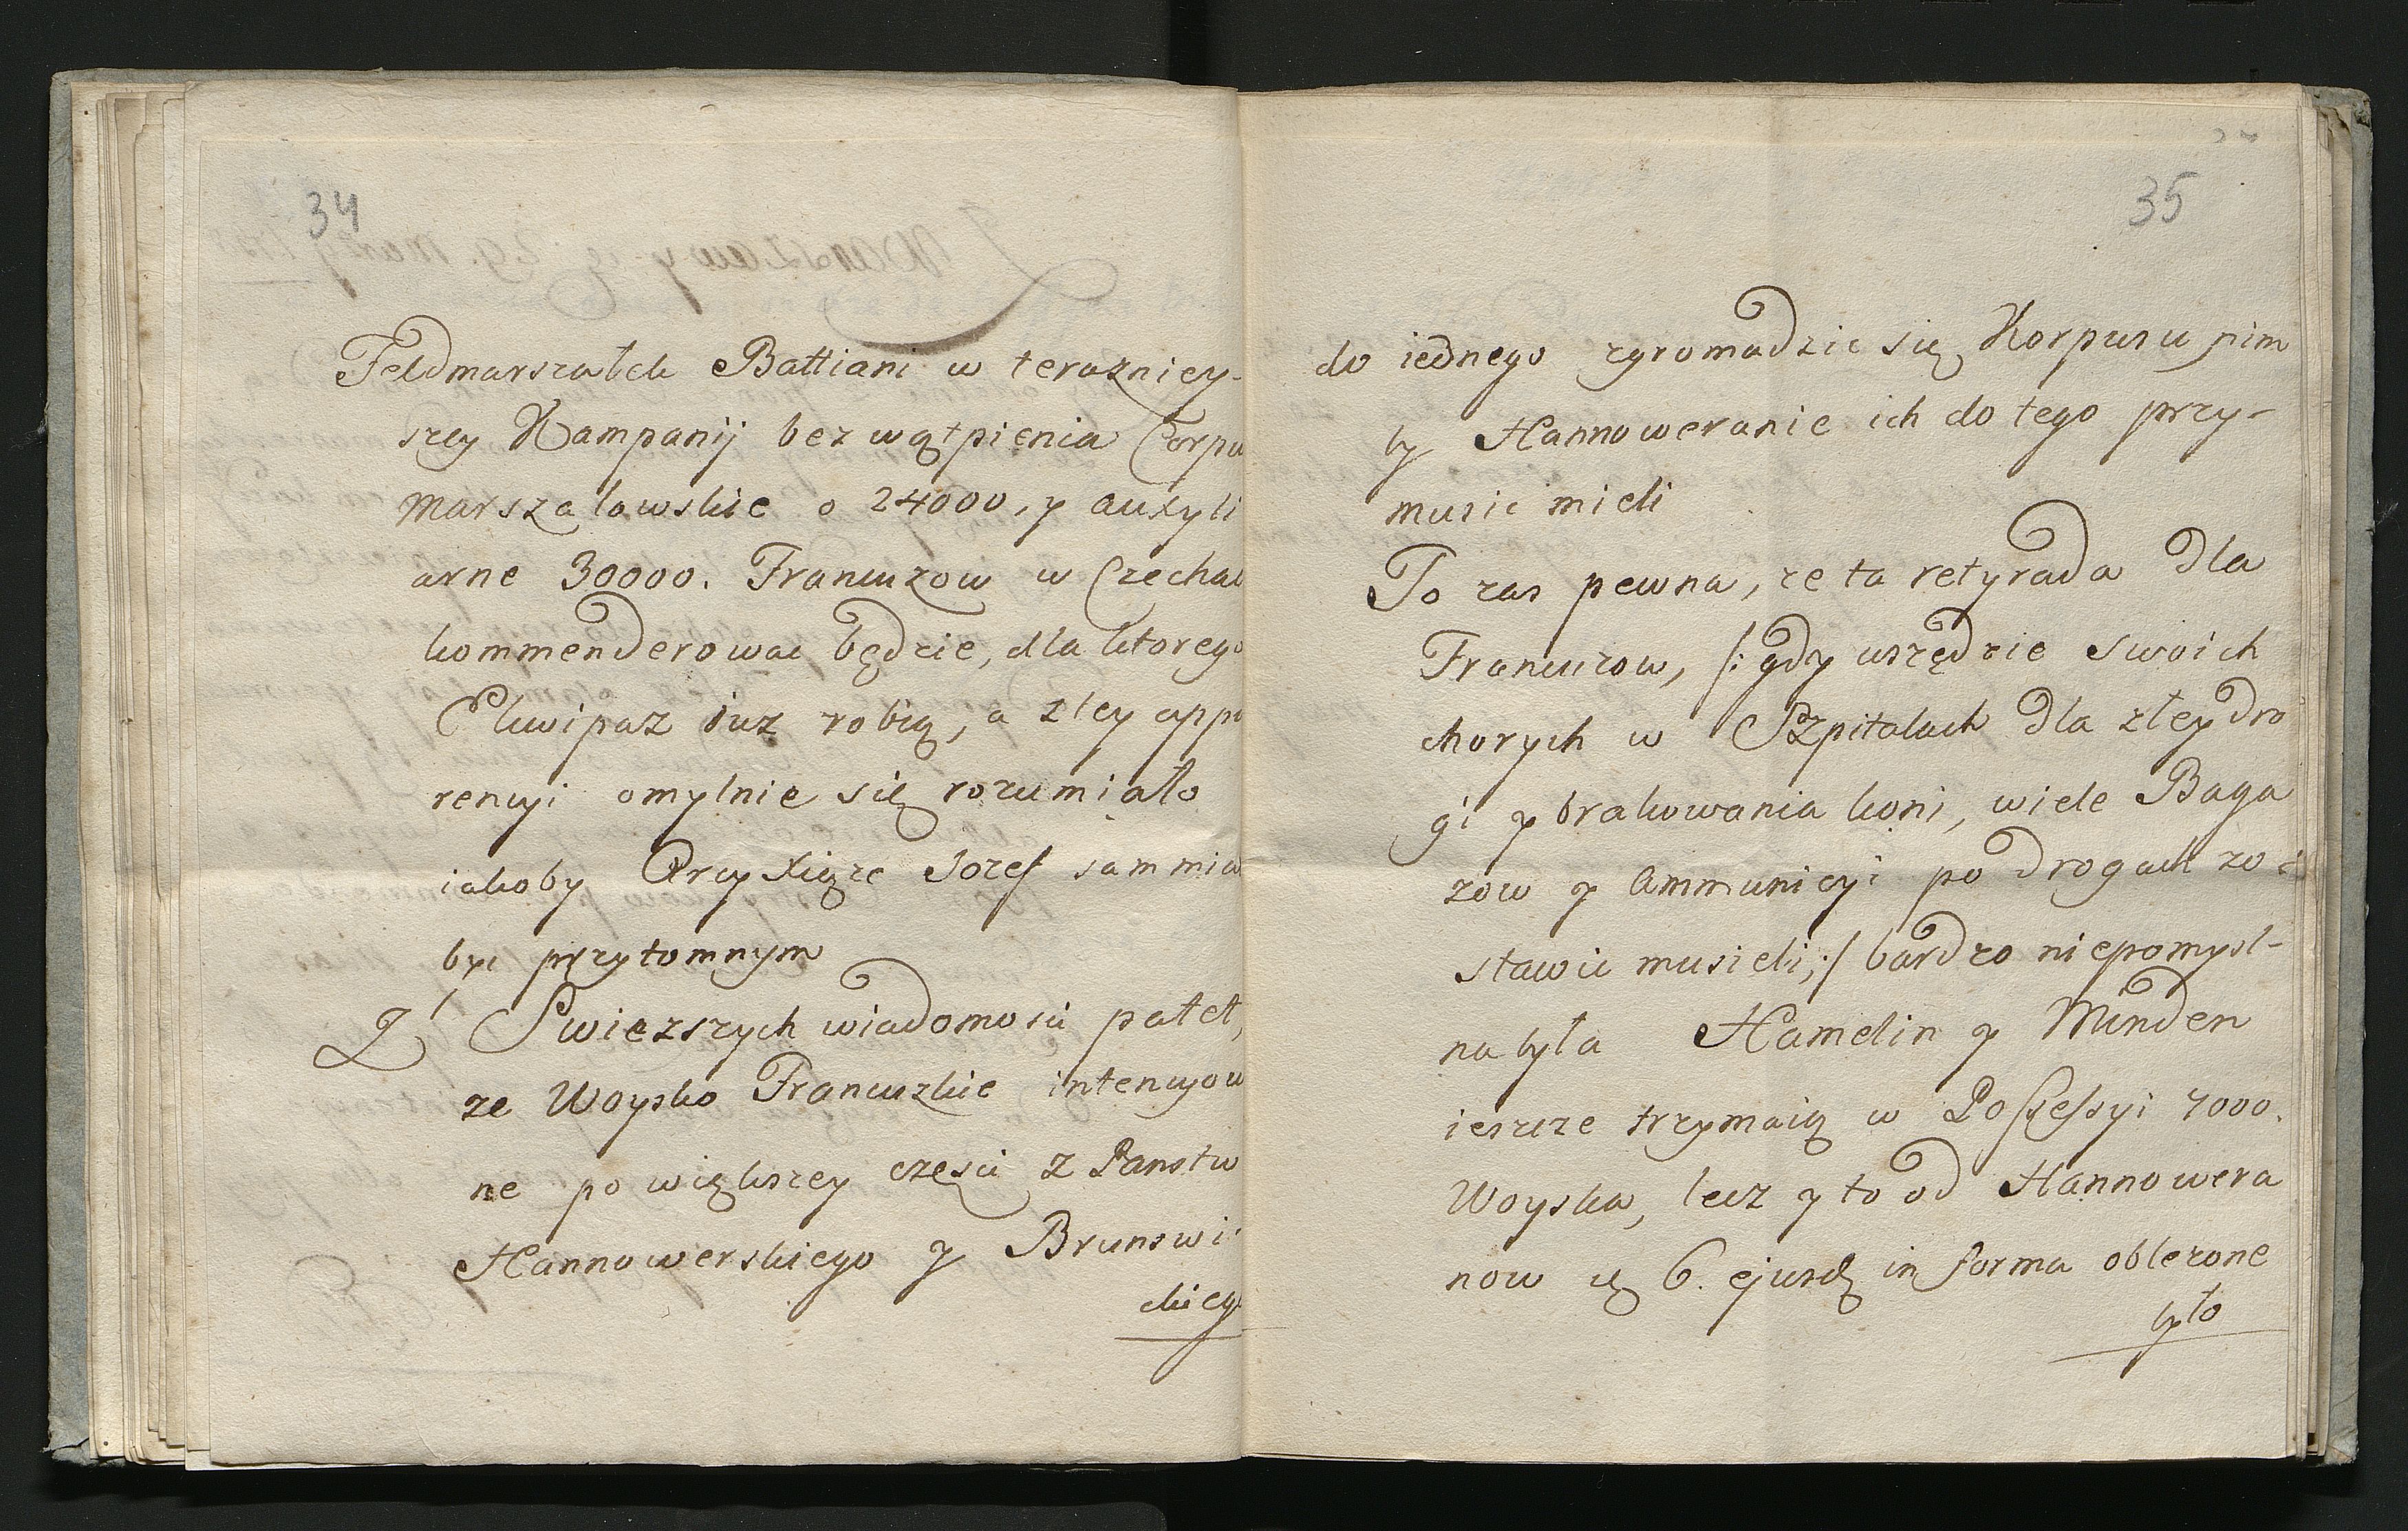 34
Feldmarszałek Battiani w terazniey-
szey Kampanij bez wątpienia Corpu
Marszalowskie o 24000, y auxyli
arne 30000. Francuzow w Czechac
kommenderowac będzie, dla ktorego
Ekwipaz iuz robią, a zley appa
rencyi omylnie się rozumiało
iakoby Arcy Xiąze Jozef sam mia
byc przytomnym
Z Swiezszych wiadomosci patet,
ze Woysko Francuzkie intencyow
ne po większey częsci z Panstw
Hannowerskiego y Brunswi-
ckieg
35
do iednego zgromadzic się Korpusu nim
by Hannoweranie ich do tego przy-
music mieli
To zas pewna, ze ta retyrada dla
Francuzow, /: gdy wszędzie swoich
chorych w Szpitalach dla złey dro
gi y brakowania koni, wiele Baga
zow y Ammunicyi po drogach zo-
stawic musieli, :/ bardzo niepomysl-
na była Hamelin y Minden
ieszcze trzymaią w Possessyi 7000.
Woyska, lecz y to od Hannowera
now 6. ejusd in forma oblezone
było